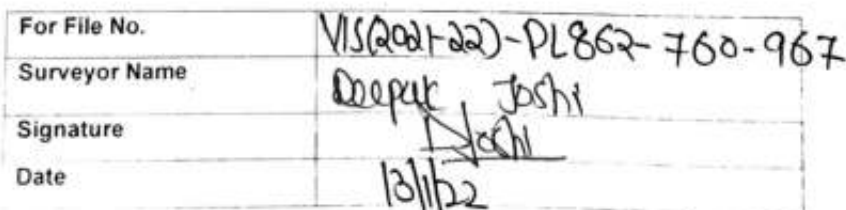 For File No. VIS(2021-22)-PL862-760-967
Surveyor Name Deepak Joshi
Signature DJoshi
Date 13/1/22